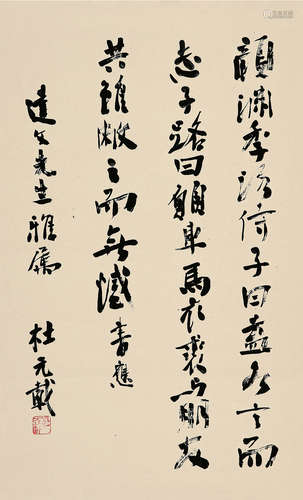 顏淵季路侍子曰盍各言而
志子路曰願車馬衣裘與朋友
共雖敝之而無憾 書應
達公先生雅屬
杜元載